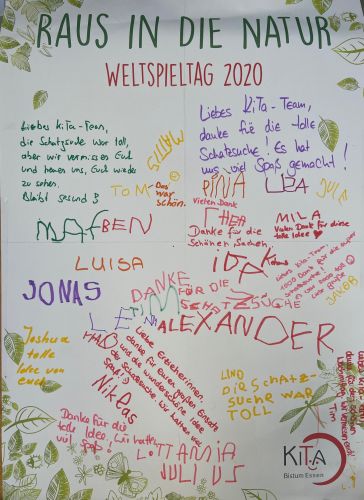 RAUS IN DIE NATUR
WELTSPIELTAG 2020
Liebes KiTa-Team,
die Schatzsuche war toll,
aber wir vermissen Euch
und freuen uns, Euch wieder
zu sehen.
Bleibt gesund
Liebes KiTa-Team,
danke für die tolle
Schatzsuche! Es hat
uns viel Spaß gemacht!
MATTIS
TOM
Das
war
schön.
PINA
Vielen Dank
THEA
Danke für die
Schönen Sachen.
MILA
Vielen Dank für diese
tolle Idee
BEN
LUISA
IDA
JONAS
JAKOB
DANKE
FÜR DIE
SCHATZSUCHE
LENI
ALEXANDER
Joshua
tolle
Idee von
euch
Liebe Erzieherinnen,
danke für euren großen Einsatz
und die wunderschöne Idee
der Schatzsuche. Wir hatten viel
Spaß!
Niklas
LINO
DIE SCHATZ-
SUCHE WAR
TOLL
Danke für die
tolle Idee. Wir hatten
viel Spaß!
LOTTA MIA
JULIUS
Tim
KiTa
Bistum Essen